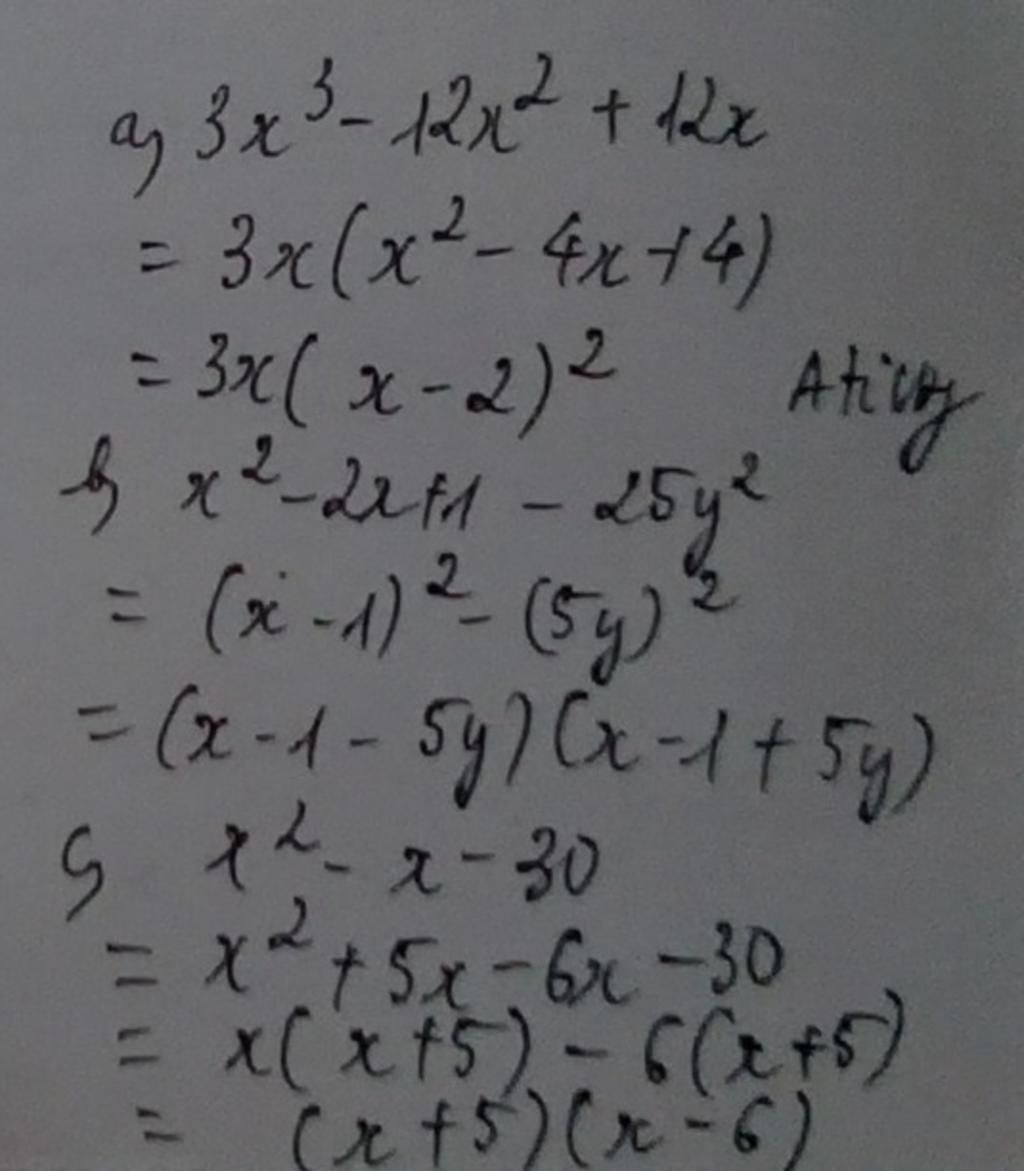 a) 3x³ - 12x² + 12x
= 3x(x² - 4x + 4)
= 3x( x - 2)²
b) x² - 2x + 1 - 25y²
= (x - 1)² - (5y)²
= (x - 1 - 5y)(x - 1 + 5y)
c) x² - x - 30
= x² + 5x - 6x - 30
= x( x + 5) - 6(x + 5)
= (x + 5)(x - 6)